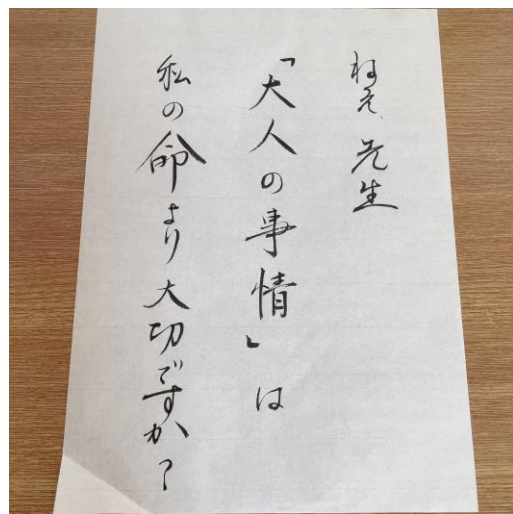 ねえ、先生
「大人の事情」は
私の命より大切ですか？